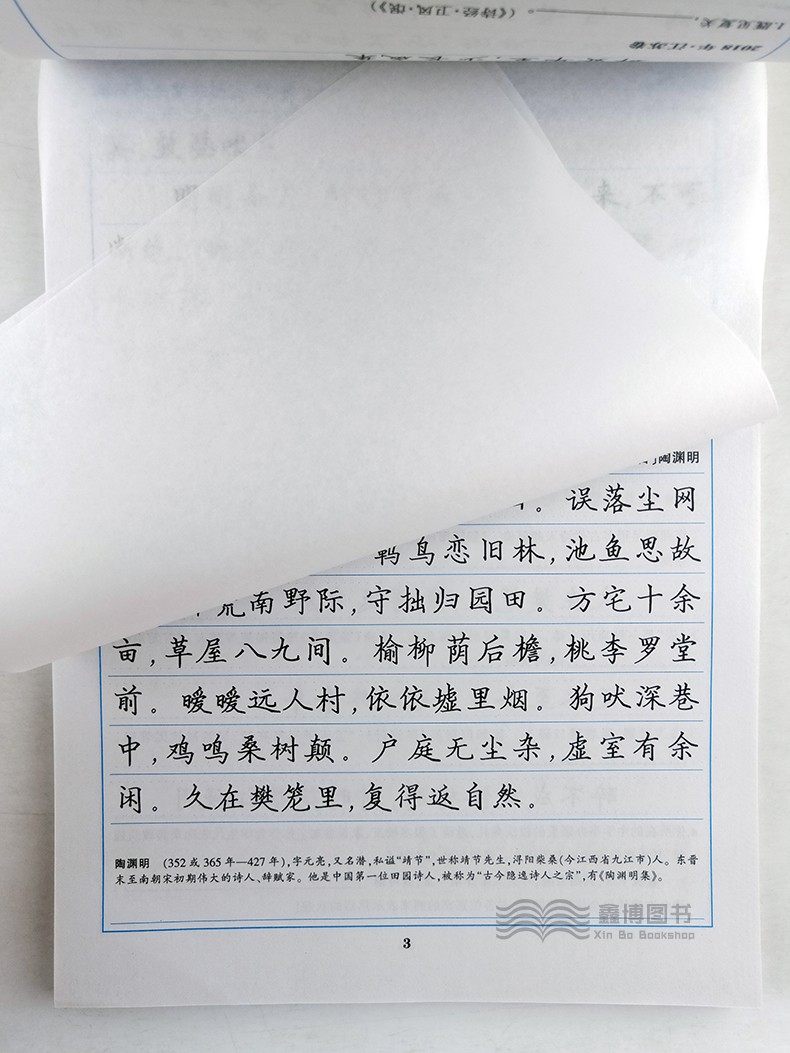 2018 年·江苏卷
1.既见复关,
(《诗经·卫风·氓》)
来,不
陶渊明
。误落尘网
鸟恋旧林,池鱼思故
荒南野际,守拙归园田。方宅十余
亩,草屋八九间。榆柳荫后檐,桃李罗堂
前。暧暧远人村,依依墟里烟。狗吠深巷
中,鸡鸣桑树颠。户庭无尘杂,虚室有余
闲。久在樊笼里,复得返自然。
陶渊明 (352 或 365 年—427 年),字元亮,又名潜,私谥“靖节”,世称靖节先生,浔阳柴桑(今江西省九江市)人。东晋
末至南朝宋初期伟大的诗人、辞赋家。他是中国第一位田园诗人,被称为“古今隐逸诗人之宗”,有《陶渊明集》。
鑫博图书
Xin Bo Bookshop
3